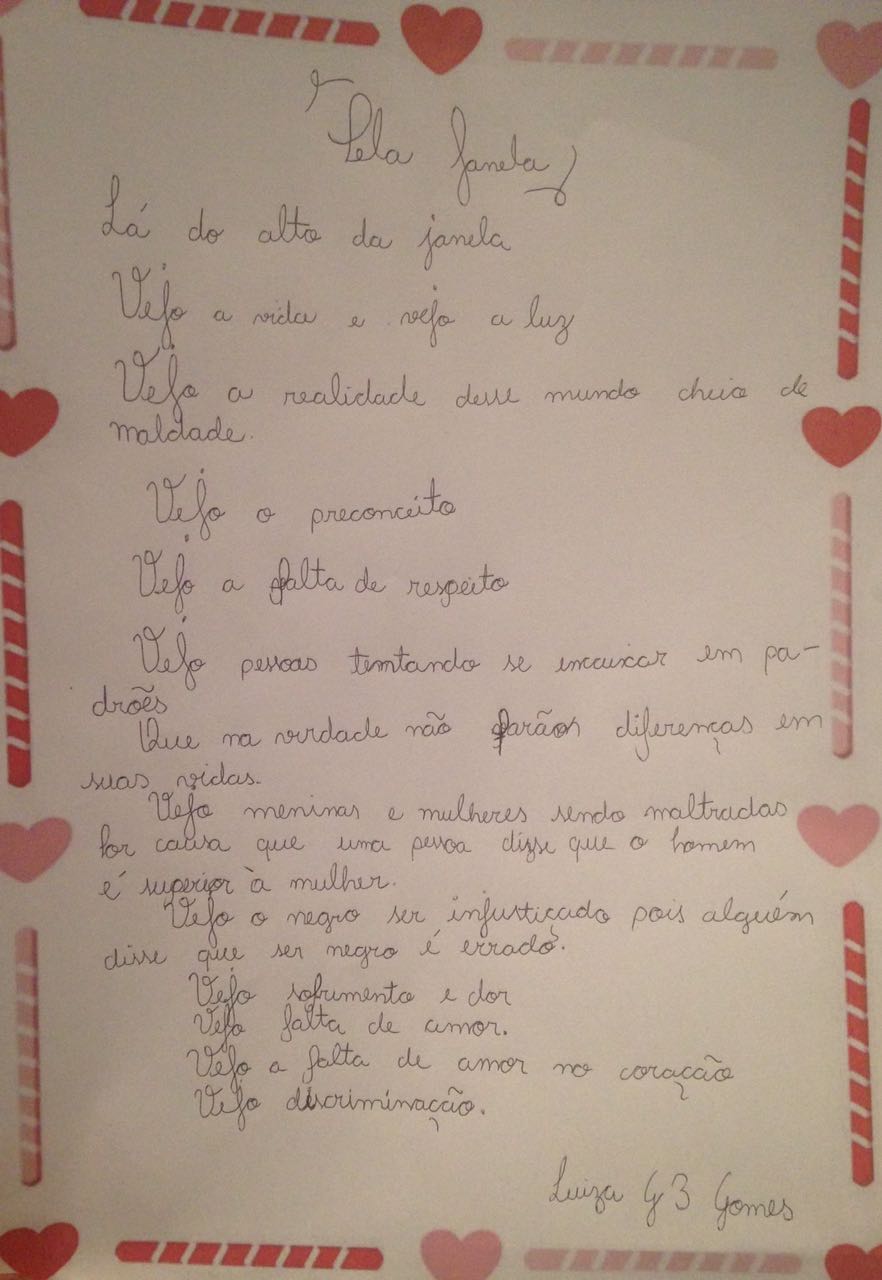 Pela Janela
Lá do alto da janela
Vejo a vida e vejo a luz
Vejo a realidade desse mundo cheio de
maldade.
Vejo o preconceito
Vejo a falta de respeito
Vejo pessoas temtando se incaixar em pa-
drões
Que na verdade não farãos diferenças em
suas vidas.
Vejo meninas e mulheres sendo maltradas
por causa que uma pessoa disse que o homem
é superior à mulher.
Vejo o negro ser injustiçado pois alguém
disse que ser negro é errado.
Vejo sofrimento e dor
Vejo falta de amor.
Vejo a falta de amor no coração
Vejo discriminação.
Luiza G B Gomes